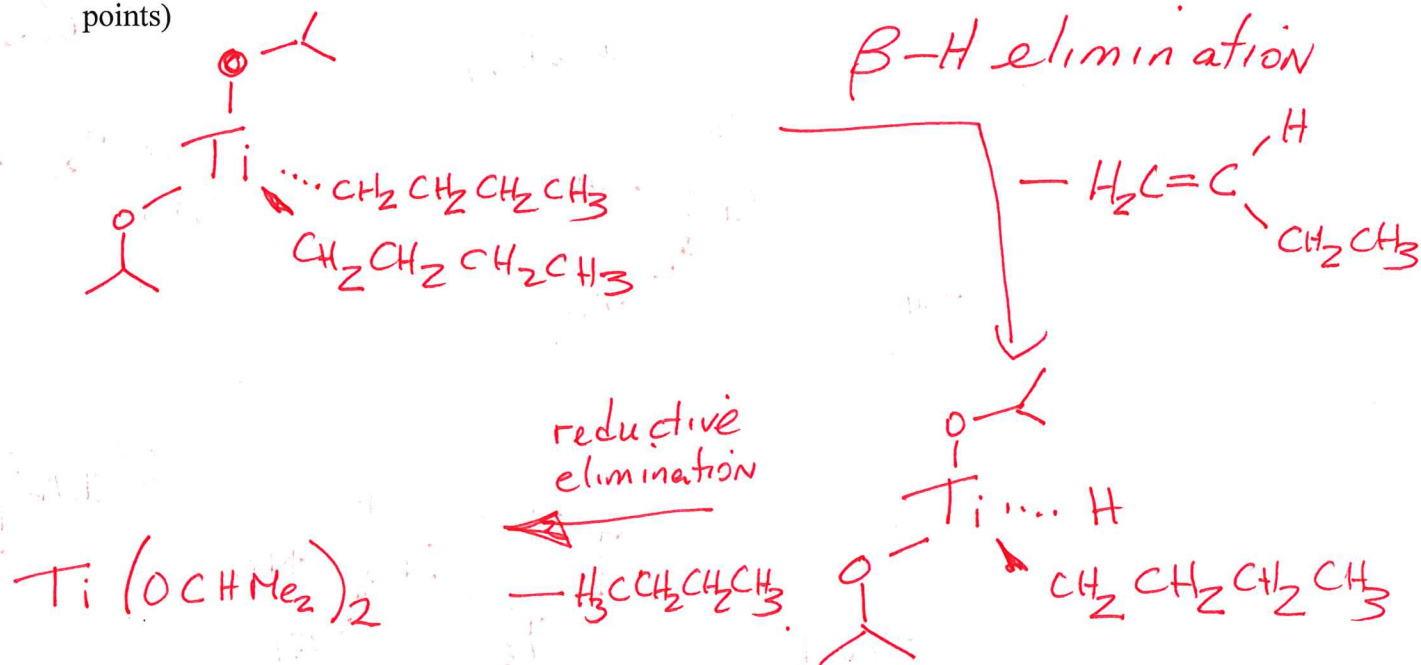 points)
O
Ti
CH2 CH2 CH2 CH3
O
CH2 CH2 CH2 CH3
β-H elimination
H
— H2C=C
CH2 CH3
O
Ti .... H
O
CH2 CH2 CH2 CH3
reductive
elimination
— H3CCH2CH2CH3.
Ti (OCHMe2)2